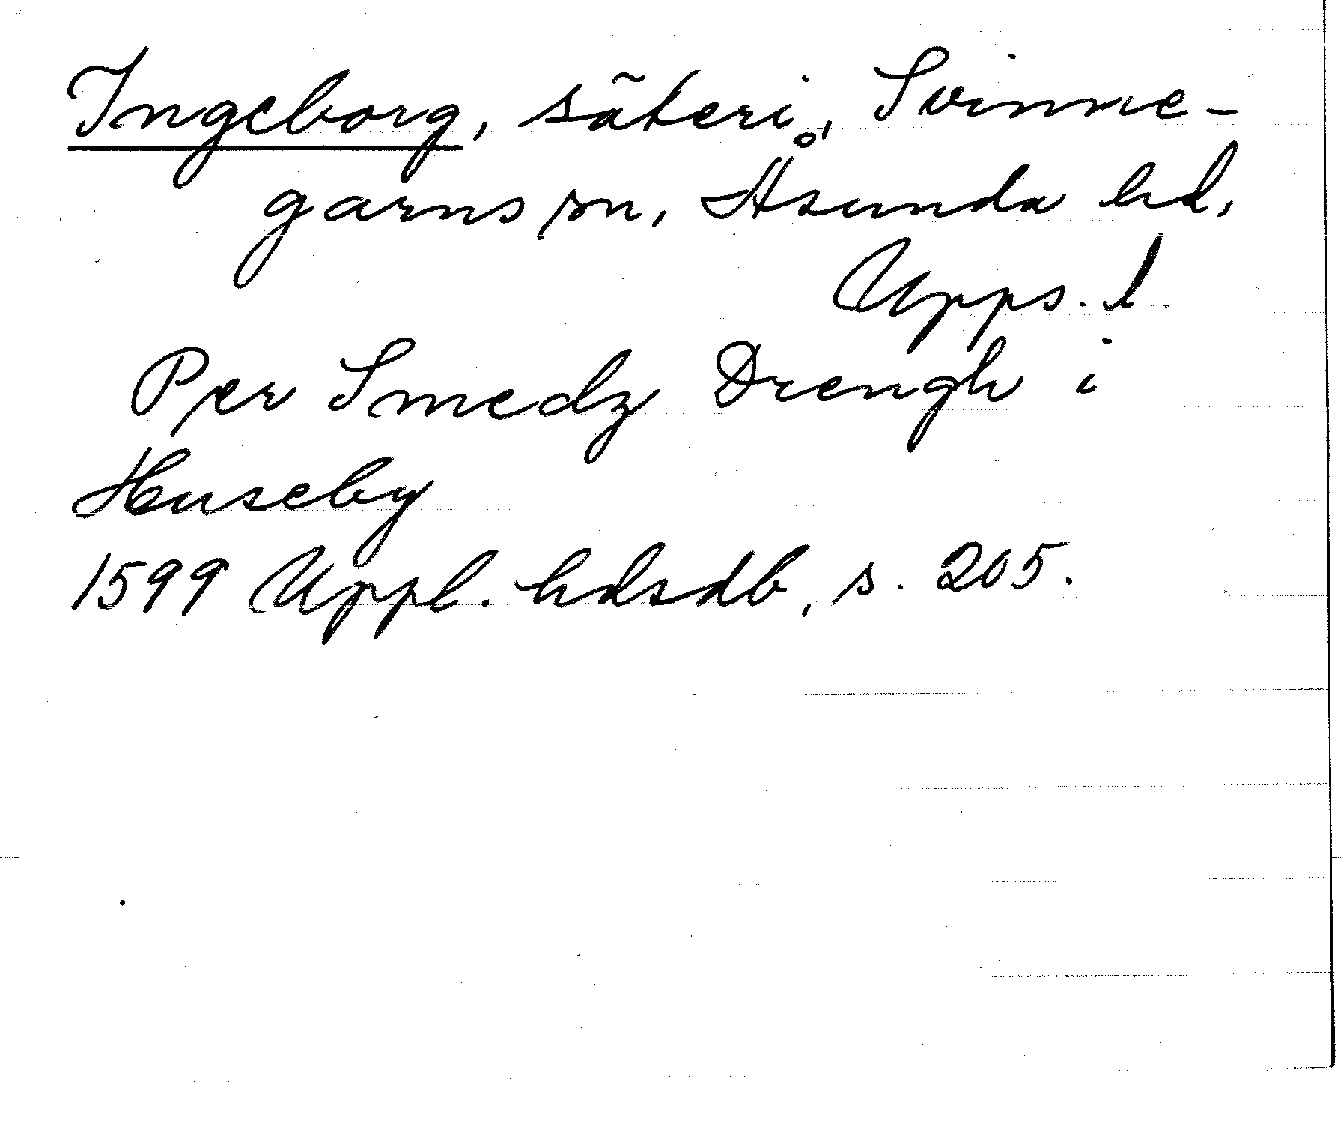 Ingeborg, säteri, Svinne-
garns sn, Åsunda hd,
Upps. l
Per Smedz Drengh i
Huseby
1599 Uppl. hdsdb, s. 205.